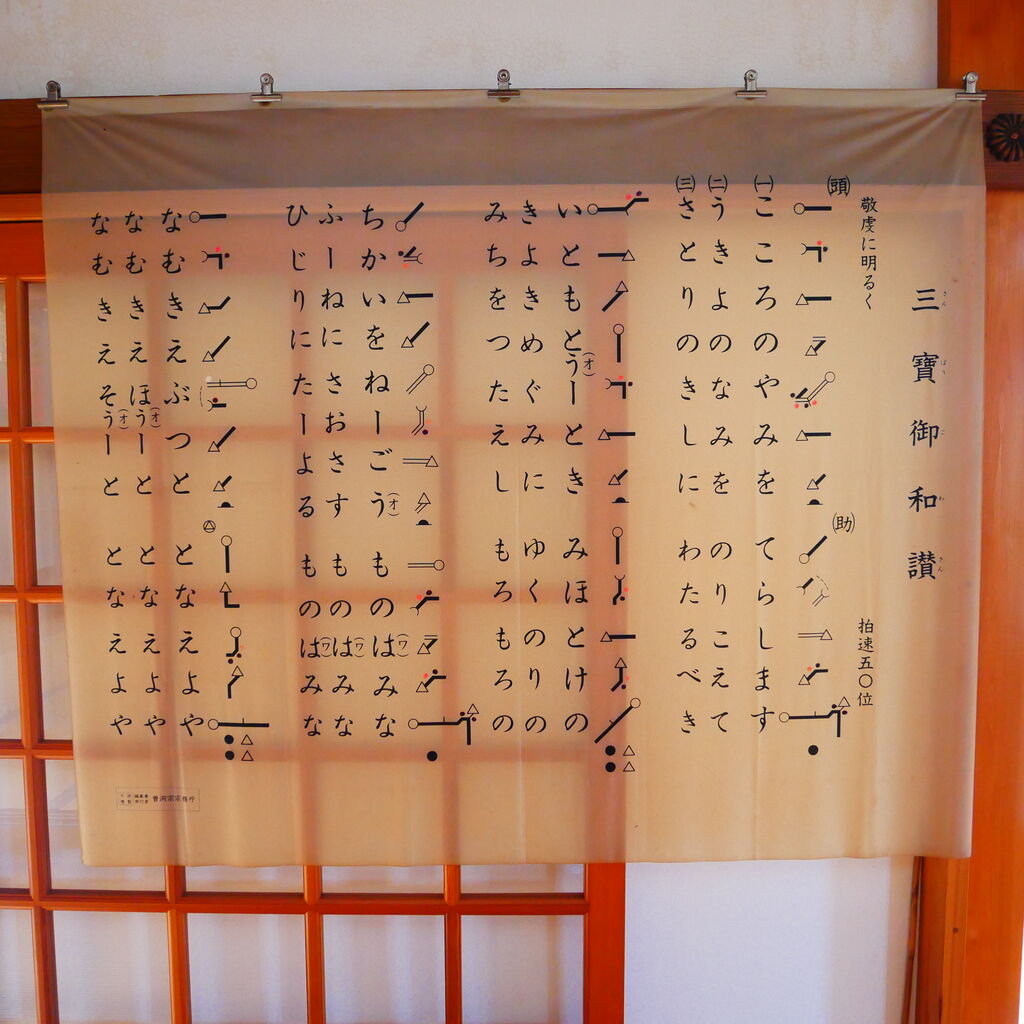 三寶御和讃
敬虔に明るく 拍速五〇位
㊀頭 助
(一)こころのやみを てらします
(二)うきよのなみを のりこえて
(三)さとりのきしに わたるべき
いともとう(オ)ーとき みほとけの
きよきめぐみに ゆくのりの
みちをつたえし もろもろの
ちかいをねーごう(オ) ものは(ワ)みな
ふーねにさおさす ものは(ワ)みな
ひじりにたーよる ものは(ワ)みな
なむきえぶつと となえよや
なむきえほう(オ)ーと となえよや
なむきえそう(オ)ーと となえよや
曹洞宗宗務庁